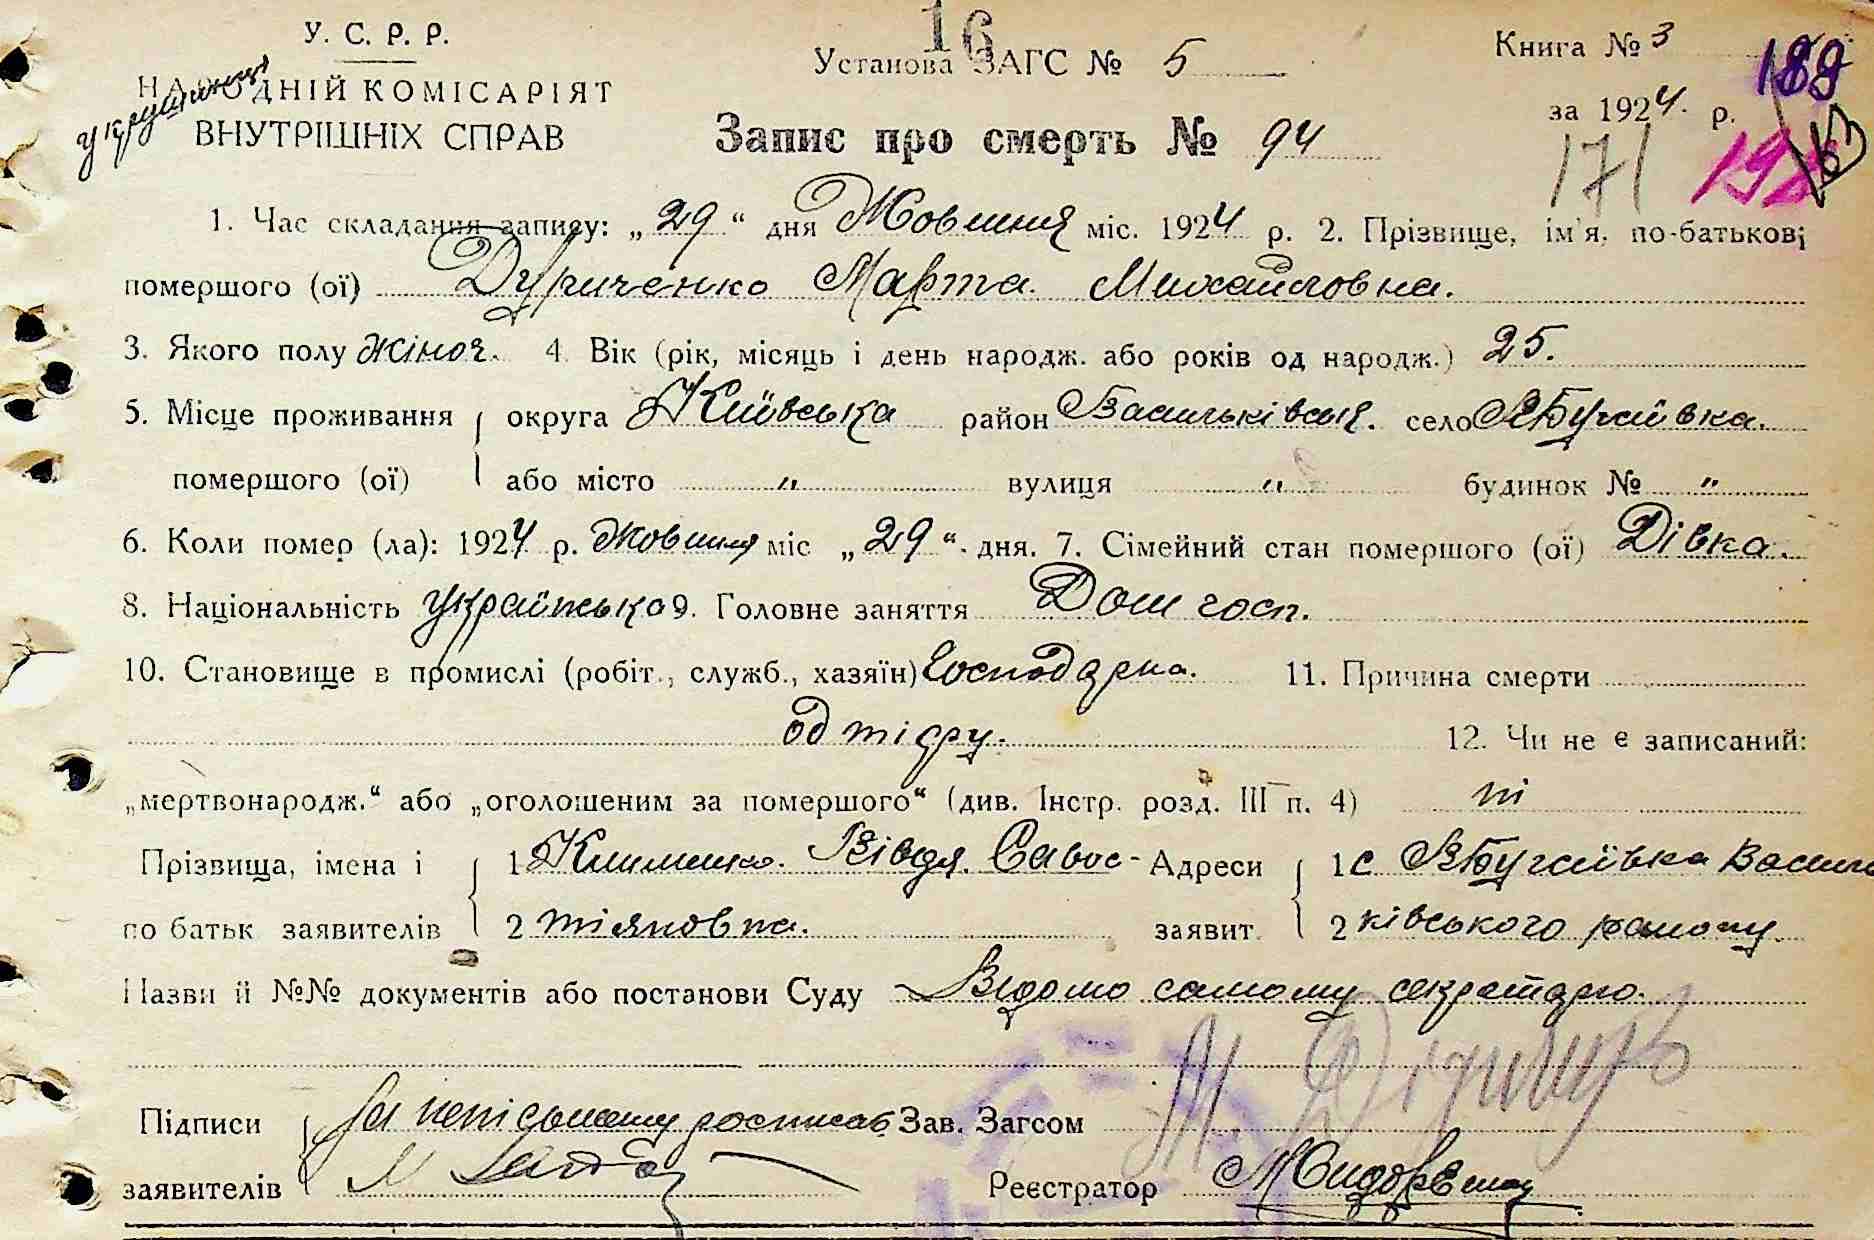 У. С. Р. Р.
16
Установа ЗАГС № 5
Книга № 3
188
НАРОДНІЙ КОМІСАРІЯТ
ВНУТРІШНІХ СПРАВ
за 1924 р.
Запис про смерть № 94
171
1. Час складання запису: „29“ дня Жовтня міс. 1924 р. 2. Прізвище, ім'я, по-батькові
помершого (ої) Марта Михайловна.
3. Якого полу жіноч. 4 Вік (рік, місяць і день народж. або років од народж.) 25.
5. Місце проживання округа Київська район Васильківськ. село
помершого (ої) або місто „ вулиця „ будинок № „
6. Коли помер (ла): 1924 р. Жовтня міс „29“. дня. 7. Сімейний стан помершого (ої) Дівка.
8. Національність українська 9. Головне заняття Дом госп.
10. Становище в промислі (робіт., служб., хазяїн) Господарка. 11. Причина смерти
од 12. Чи не є записаний:
„мертвонародж.“ або „оголошеним за помершого“ (див. Інстр. розд. III п. 4) ні
Прізвища, імена і 1 Клименко. Вівдя. Савос- Адреси 1 с Васить
по батьк заявителів 2 тіяновна. заявит. 2 ківського району.
Назви й №№ документів або постанови Суду Відомо самому секретарю.
Підписи За неписьмену росписав Зав. Загсом
заявителів Реєстратор